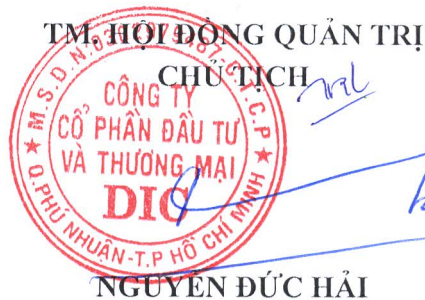 TM. HỘI ĐỒNG QUẢN TRỊ
CHỦ TỊCH
CÔNG TY
CỔ PHẦN ĐẦU TƯ
VÀ THƯƠNG MẠI
DIC
Q.PHÚ NHUẬN-T.P HỒ CHÍ MINH
NGUYỄN ĐỨC HẢI